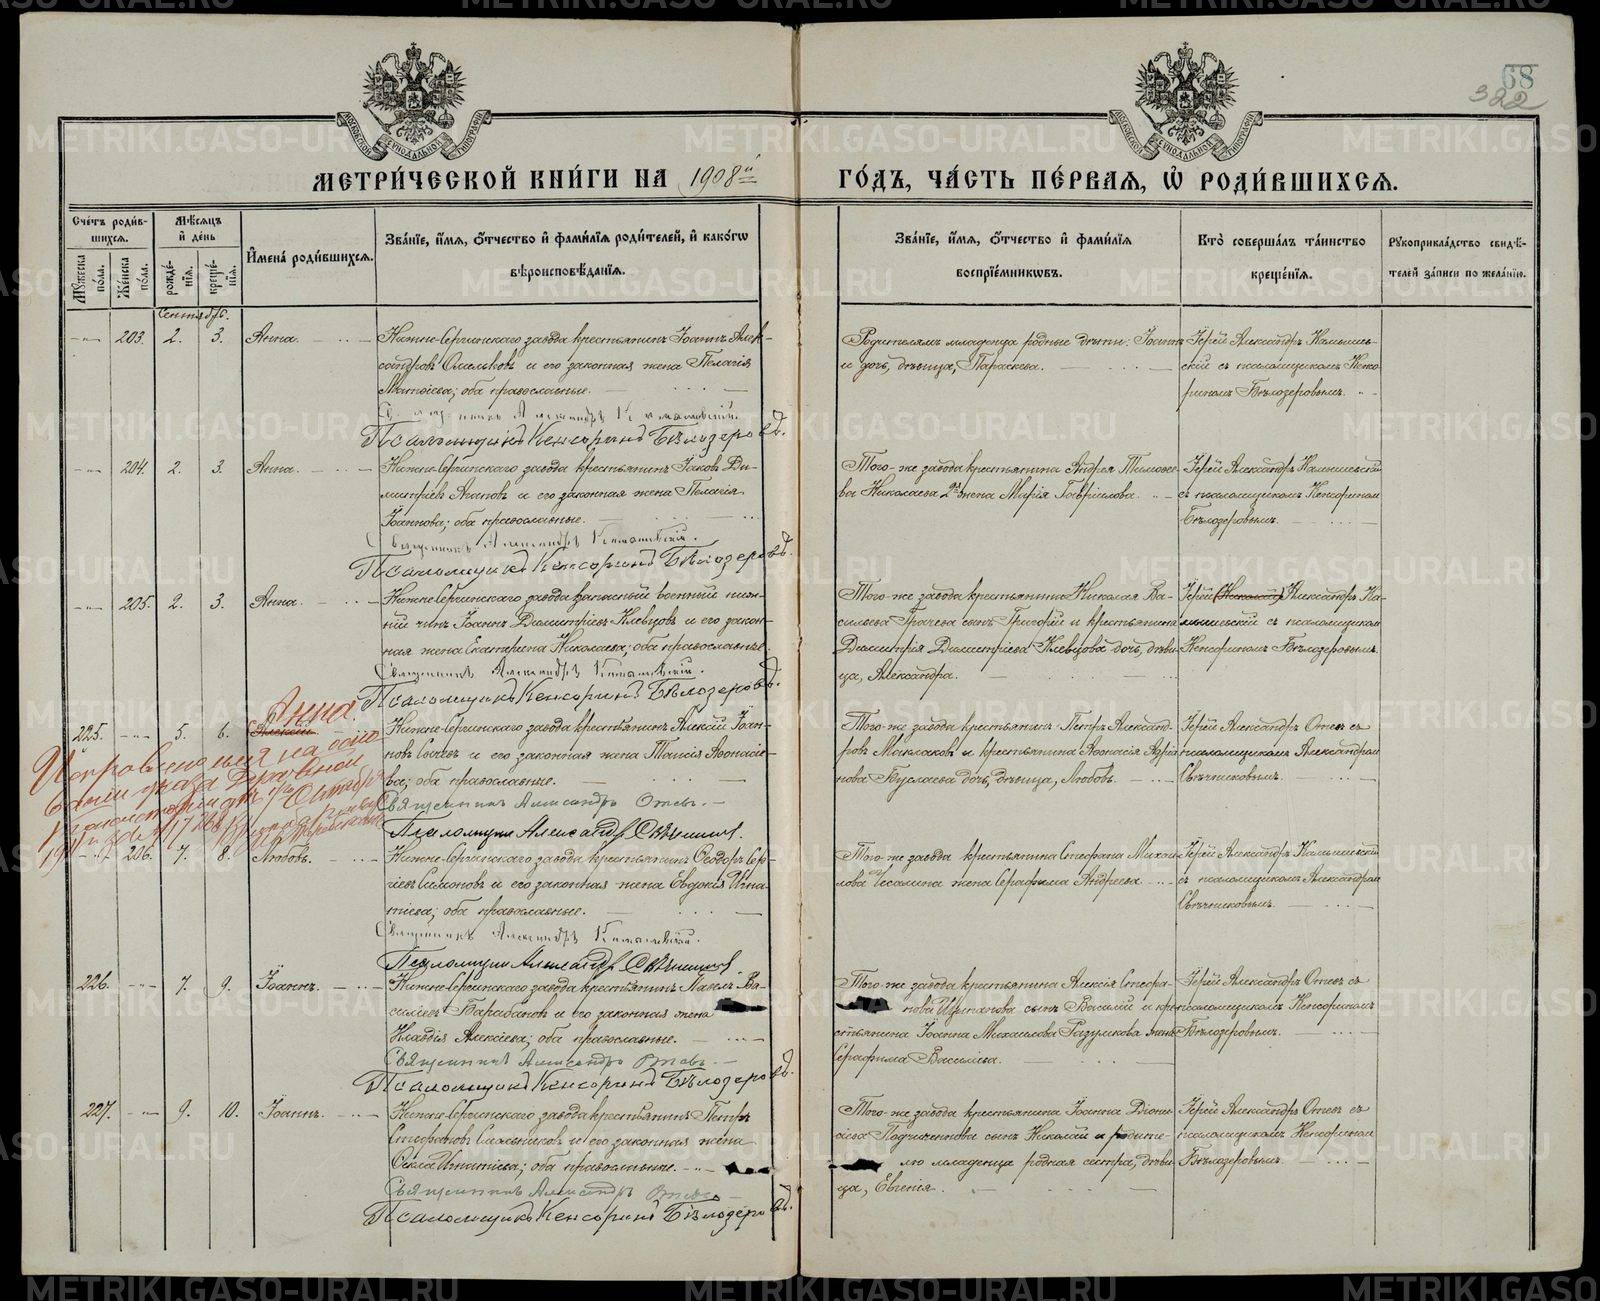 68
322
МОСКОВСКОЙ СѴНОДАЛЬНОЙ ТИПОГРАФІИ
МОСКОВСКОЙ СѴНОДАЛЬНОЙ ТИПОГРАФІИ
МЕТРИ́ЧЕСКОЙ КНИ́ГИ НА 1908й
ГО́ДЪ, ЧА́СТЬ ПЕ́РВАЯ, Ѡ РОДИ́ВШИХСЯ.
Сче́тъ роди́вшихся.
Мꙋ́жеска по́ла.
Же́нска по́ла.
Мѣ́сяцъ и҆ де́нь
рожде́нїя.
креще́нїя.
И҆мена̀ роди́вшихся.
Зва́нїе, и҆́мя, ѻ҆́тчество и҆ фами́лїя роди́телей, и҆ како́гѡ
вѣроисповѣ́данїя.
Зва́нїе, и҆́мя, ѻ҆́тчество и҆ фами́лїя
воспрїе́мникѡвъ.
Кто̀ соверша́лъ та́инство
креще́нїя.
Рꙋкоприкла́дство свидѣ́-
телей за́писи по жела́нїю.
Сентябрь.
203. 2. 3. Анна.
Нижне-Сергинскаго завода крестьянинъ Іоаннъ Алек-
сандровъ Омельковъ и его законная жена Пелагія
Матвіева; оба православные.
Священникъ Александръ Камышевскій.
Псаломщикъ Кенсоринъ Бѣлозеровъ.
Родителямъ младенца родные дѣти: Іоаннъ
и дочь, дѣвица, Параскева.
Іерей Александръ Камышев-
скій съ псаломщикомъ Кенсо-
риномъ Бѣлозеровымъ.
204. 2. 3. Анна.
Нижне-Сергинскаго завода крестьянинъ Іаковъ Ди-
митріевъ Агаповъ и его законная жена Пелагія
Іоаннова; оба православные.
Священникъ Александръ Камышевскій.
Псаломщикъ Кенсоринъ Бѣлозеровъ.
Того-же завода крестьянина Андрея Тимофе-
ева Николаева жена Марія Гавріилова.
Іерей Александръ Камышевскій
съ псаломщикомъ Кенсориномъ
Бѣлозеровымъ.
205. 2. 3. Анна.
Нижне-Сергинскаго завода запасный военный ниж-
ній чинъ Іоаннъ Димитріевъ Клевцовъ и его закон-
ная жена Екатерина Николаева; оба православные.
Священникъ Александръ Камышевскій.
Псаломщикъ Кенсоринъ Бѣлозеровъ.
Того-же завода крестьянина Николая Ва-
сильева Грачева сынъ Григорій и крестьянина
Димитрія Димитріева Клевцова дочь, дѣви-
ца, Александра.
Іерей (Николай) Александръ Ка-
мышевскій съ псаломщикомъ
Кенсориномъ Бѣлозеровымъ.
Анна.
225. 5. 6. Алексій
Нижне-Сергинскаго завода крестьянинъ Алексій Іоан-
новъ и его законная жена Таисія Афонасіе-
ва; оба православные.
Священникъ Александръ Отевъ.
Псаломщикъ Александръ Свѣчниковъ.
Того-же завода крестьянинъ Петръ Александ-
ровъ Маклаковъ и крестьянина Афонасія Адріа-
нова Буслаева дочь, дѣвица, Любовь.
Іерей Александръ Отевъ съ
псаломщикомъ Александромъ
Свѣчниковымъ.
на осно-
указа
Октября
206. 7. 8. Любовь.
Нижне-Сергинскаго завода крестьянинъ Ѳеодоръ Сер-
гіевъ Симановъ и его законная жена Евдокія Игна-
тіева; оба православные.
Священникъ Александръ Камышевскій.
Псаломщикъ Александръ Свѣчниковъ.
Того-же завода крестьянина Стефана Михаи-
лова жена Серафима Андреева.
Іерей Александръ Камышевскій
съ псаломщикомъ Александромъ
Свѣчниковымъ.
226. 7. 9. Іоаннъ.
Нижне-Сергинскаго завода крестьянинъ Павелъ Ва-
силіевъ Барабановъ и его законная жена
Клавдія Алексіева; оба православные.
Священникъ Александръ Отевъ.
Псаломщикъ Кенсоринъ Бѣлозеровъ.
Того-же завода крестьянина Алексія Стефа-
нова сынъ Василій и кре-
стьянина Іоанна Михаилова жена
Серафима Василіева.
Іерей Александръ Отевъ съ
псаломщикомъ Кенсориномъ
Бѣлозеровымъ.
227. 9. 10. Іоаннъ.
Нижне-Сергинскаго завода крестьянинъ Петръ
Стефановъ и его законная жена
Ѳекла Игнатіева; оба православные.
Священникъ Александръ Отевъ
Псаломщикъ Кенсоринъ Бѣлозеровъ.
Того-же завода крестьянина Іоанна Діони-
сіева сынъ Николай и родите-
лю младенца родная сестра, дѣви-
ца, Евгенія.
Іерей Александръ Отевъ съ
псаломщикомъ Кенсориномъ
Бѣлозеровымъ.
METRIKI.GASO-URAL.RU